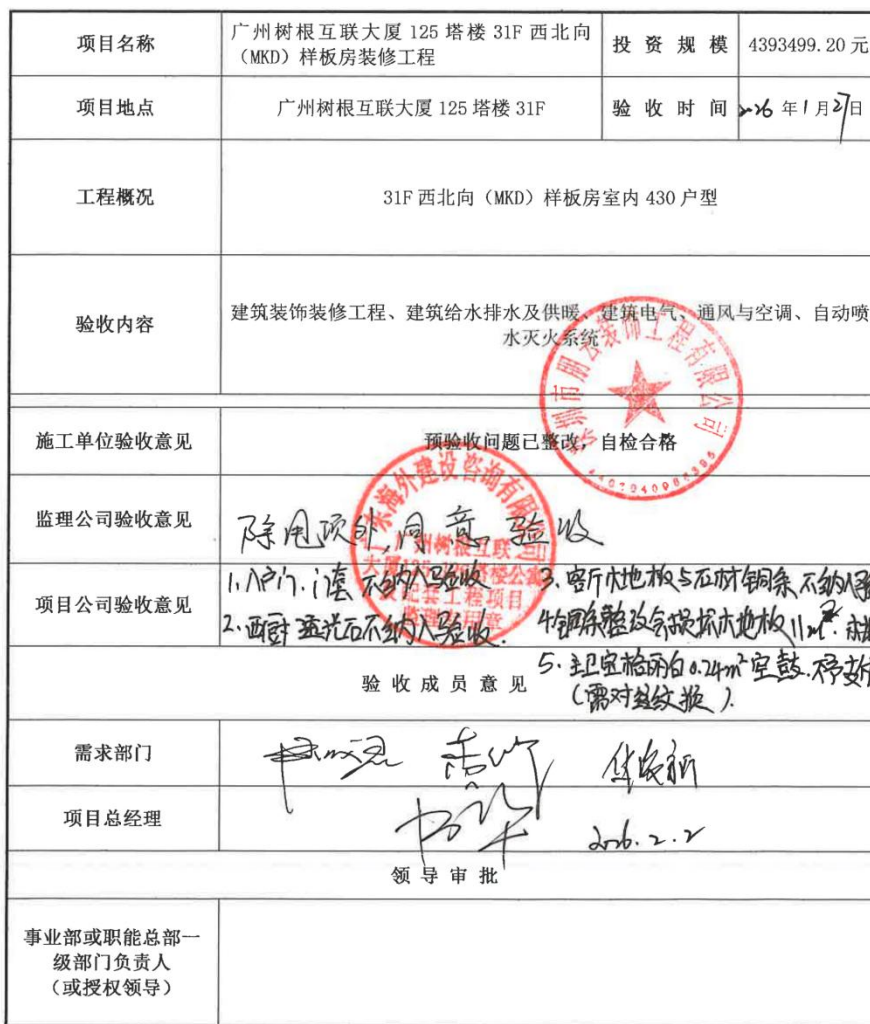 项目名称
广州树根互联大厦 125 塔楼 31F 西北向
（MKD）样板房装修工程
投资规模
4393499.20 元
项目地点
广州树根互联大厦 125 塔楼 31F
验收时间
2026 年 1 月 27 日
工程概况
31F 西北向（MKD）样板房室内 430 户型
验收内容
建筑装饰装修工程、建筑给水排水及供暖、建筑电气、通风与空调、自动喷
水灭火系统
施工单位验收意见
预验收问题已整改，自检合格
监理公司验收意见
除甩项外,同意验收
项目公司验收意见
1. 入户门、门套 不纳入验收
2. 西厨 透光石不纳入验收.
3. 客厅木地板与石材铜条 不纳入
4. 铜条整改会损坏木地板
5. 主卫 0.24m² 空鼓.不予
验收成员意见
需求部门
项目总经理
2026.2.2
领导审批
事业部或职能总部一
级部门负责人
（或授权领导）
装饰工程有限公司
海外建设咨询有限公司
广州树根互联
配套工程项目